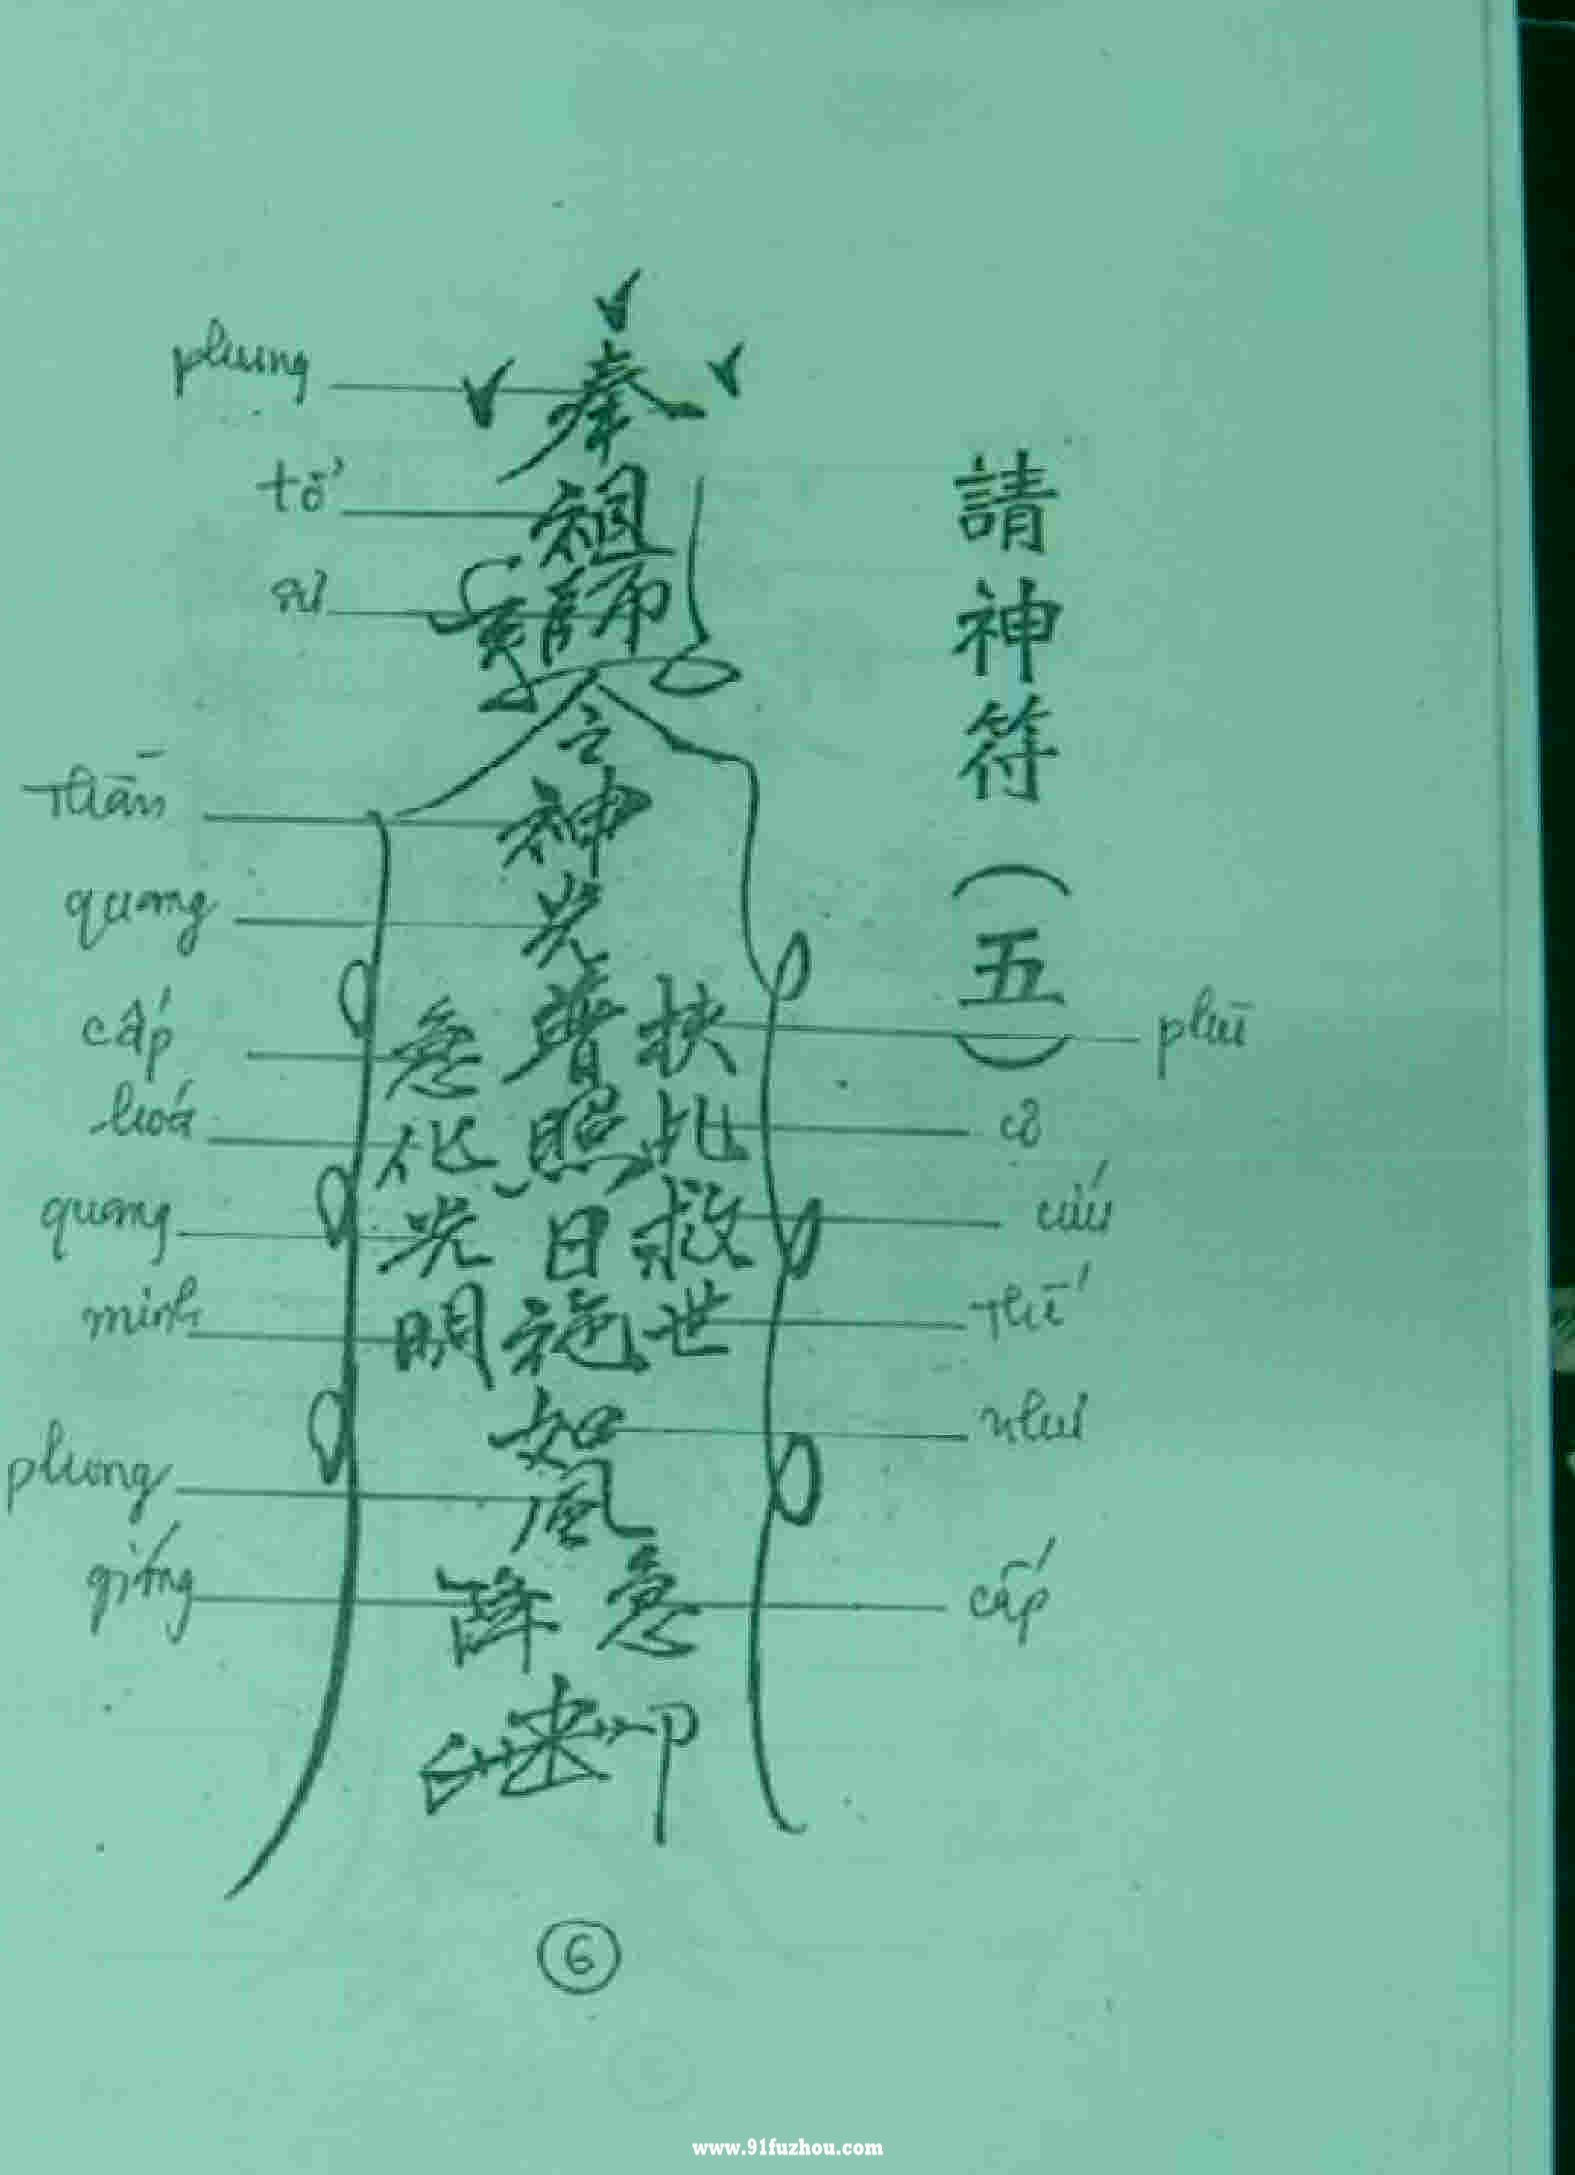 請神符（五）
phụng
奉
tổ
祖
sư
師
令
Thần
神
quang
光
普照日祂
cấp
急
hoá
化
quang
光
minh
明
phù
扶
cơ
乩
cứu
救
thế
世
như
如
phong
風
giáng
降
cấp
急
來
印
6
www.91fuzhou.com